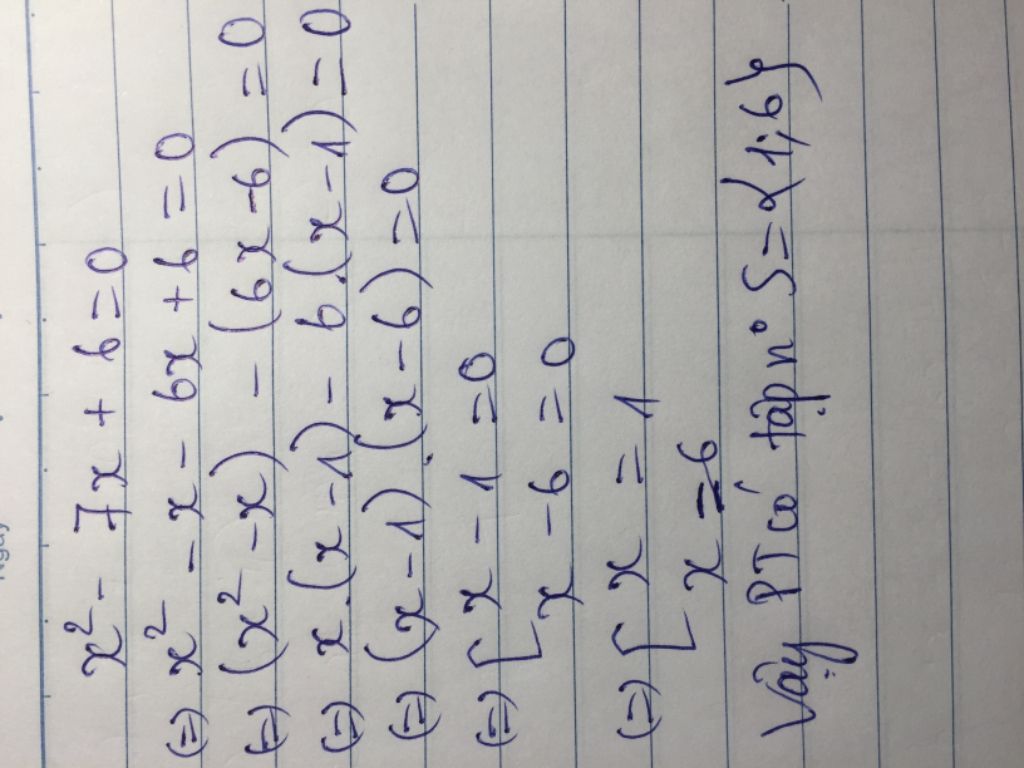 Ngày
x² - 7x + 6 = 0
(=) x² - x - 6x + 6 = 0
(=) (x² - x) - (6x - 6) = 0
(=) x.(x - 1) - 6.(x - 1) = 0
(=) (x - 1).(x - 6) = 0
(=) [ x - 1 = 0
x - 6 = 0
(=) [ x = 1
x = 6
Vậy PT có tập n° S = {1; 6}